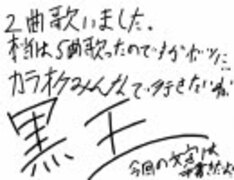 2曲歌いました。
本当は5曲歌ったのですがボツに…
カラオケみんなで行きたいが
黒王
今回の文字は